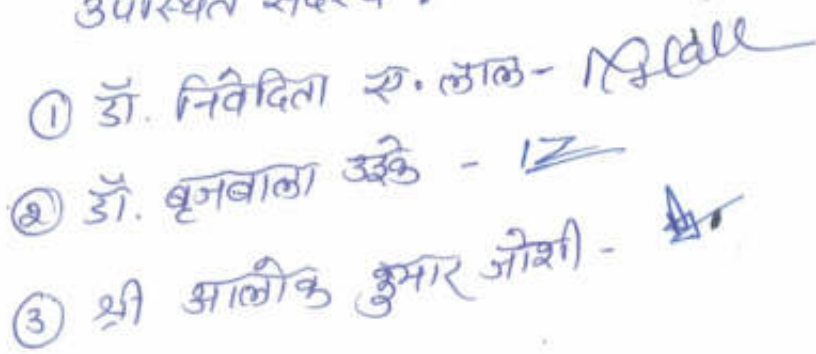 उपस्थित सदस्य :
① डॉ. निवेदिता ए. लाल -
② डॉ. बृजबाला उइके -
③ श्री आलोक कुमार जोशी -